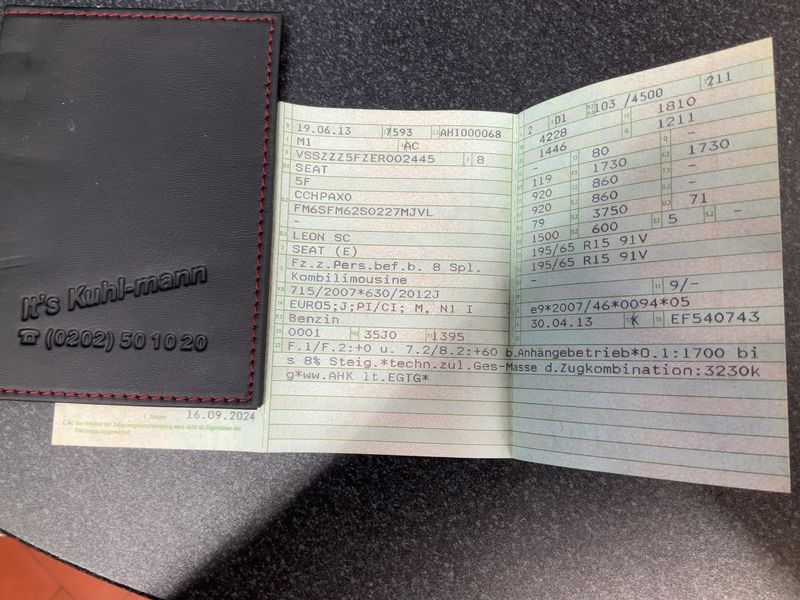 It's Kuhl-mann
☎ (0202) 50 10 20
16.09.2024
C.4c Der Inhaber der Zulassungsbescheinigung wird nicht als Eigentümer des Fahrzeugs ausgewiesen.
19.06.13 7593 AHI000068
M1 AC
VSSZZZ5FZER002445 8
SEAT
5F
CCHPAX0
FM6SFM62S0227MJVL
-
LEON SC
SEAT (E)
Fz.z.Pers.bef.b. 8 Spl.
Kombilimousine
715/2007*630/2012J
EURO5;J;PI/CI; M, N1 I
Benzin
0001 35J0 1395
F.1/F.2:+0 u. 7.2/8.2:+60 b.Anhängebetrieb*O.1:1700 bi
s 8% Steig.*techn.zul.Ges-Masse d.Zugkombination:3230k
g*ww.AHK lt.EGTG*
2 01 103 /4500 211
4228 1810
1446 1211
- 80 -
119 1730 1730
920 860 -
920 860 -
79 3750 71
1500 600 5 -
195/65 R15 91V
195/65 R15 91V
-
9/-
e9*2007/46*0094*05
30.04.13 K EF540743